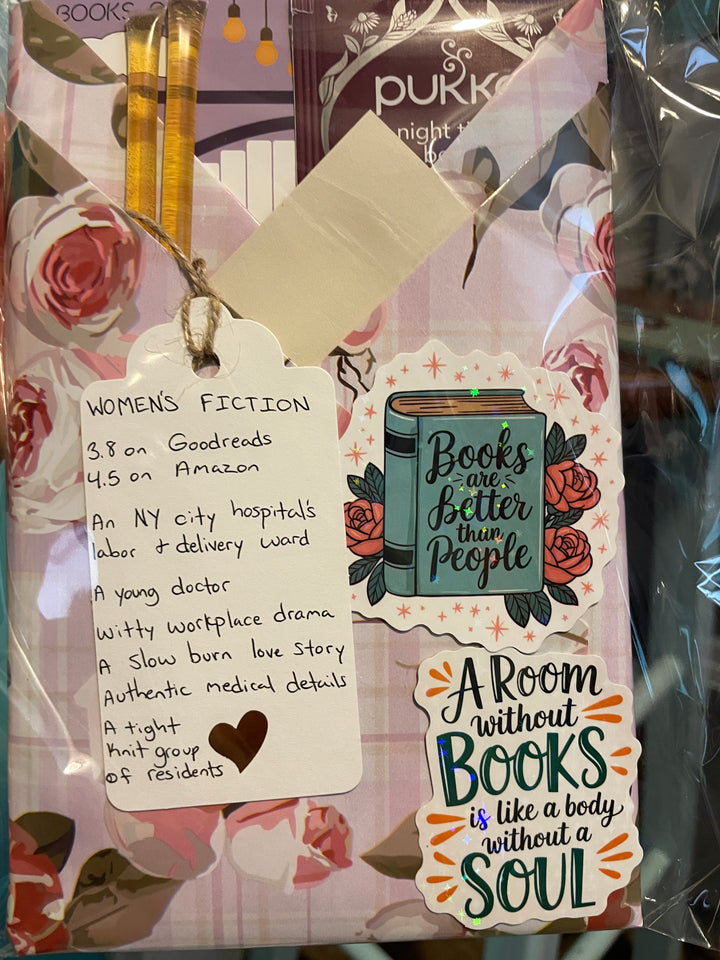 BOOKS
pukk
night ti
WOMEN'S FICTION
3.8 on Goodreads
4.5 on Amazon
An NY city hospital's
labor & delivery ward
A young doctor
witty workplace drama
A slow burn love story
Authentic medical details
A tight
knit group
of residents
Books
are
Better
than
People
A Room
without
BOOKS
is like a body
without a
SOUL